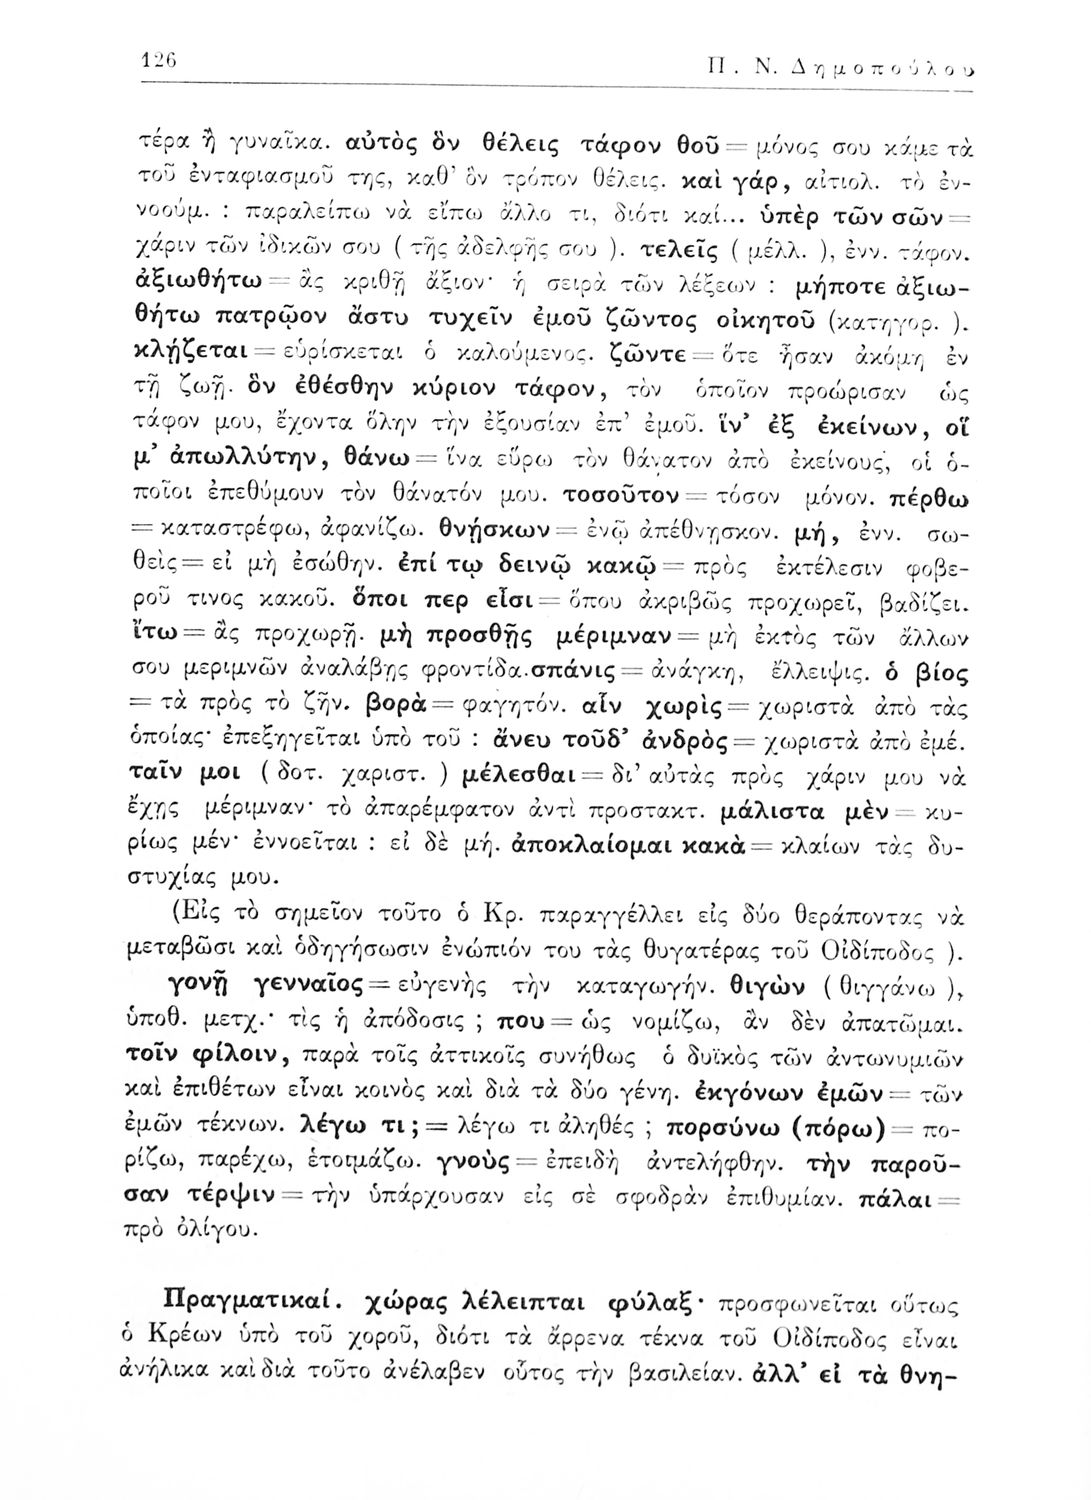 126
Π. Ν. Δημοπούλου
τέρα ἢ γυναῖκα. αὐτὸς ὃν θέλεις τάφον θοῦ = μόνος σου κάμε τὰ
τοῦ ἐνταφιασμοῦ της, καθ' ὃν τρόπον θέλεις. καὶ γάρ, αἰτιολ. τὸ ἐν-
νοούμ. : παραλείπω νὰ εἴπω ἄλλο τι, διότι καί... ὑπὲρ τῶν σῶν =
χάριν τῶν ἰδικῶν σου ( τῆς ἀδελφῆς σου ). τελεῖς ( μέλλ. ), ἐνν. τάφον.
ἀξιωθήτω = ἂς κριθῇ ἄξιον· ἡ σειρὰ τῶν λέξεων : μήποτε ἀξιω-
θήτω πατρῷον ἄστυ τυχεῖν ἐμοῦ ζῶντος οἰκητοῦ (κατηγορ. ).
κλῄζεται = εὑρίσκεται ὁ καλούμενος. ζῶντε = ὅτε ἦσαν ἀκόμη ἐν
τῇ ζωῇ. ὃν ἐθέσθην κύριον τάφον, τὸν ὁποῖον προώρισαν ὡς
τάφον μου, ἔχοντα ὅλην τὴν ἐξουσίαν ἐπ' ἐμοῦ. ἵν' ἐξ ἐκείνων, οἵ
μ' ἀπωλλύτην, θάνω = ἵνα εὕρω τὸν θάνατον ἀπὸ ἐκείνους, οἱ ὁ-
ποῖοι ἐπεθύμουν τὸν θάνατόν μου. τοσοῦτον = τόσον μόνον. πέρθω
= καταστρέφω, ἀφανίζω. θνῄσκων = ἐνῷ ἀπέθνῃσκον. μή, ἐνν. σω-
θεὶς = εἰ μὴ ἐσώθην. ἐπί τῳ δεινῷ κακῷ = πρὸς ἐκτέλεσιν φοβε-
ροῦ τινος κακοῦ. ὅποι περ εἶσι = ὅπου ἀκριβῶς προχωρεῖ, βαδίζει.
ἴτω = ἂς προχωρῇ. μὴ προσθῇς μέριμναν = μὴ ἐκτὸς τῶν ἄλλων
σου μεριμνῶν ἀναλάβῃς φροντίδα. σπάνις = ἀνάγκη, ἔλλειψις. ὁ βίος
= τὰ πρὸς τὸ ζῆν. βορὰ = φαγητόν. αἷν χωρὶς = χωριστὰ ἀπὸ τὰς
ὁποίας· ἐπεξηγεῖται ὑπὸ τοῦ : ἄνευ τοῦδ' ἀνδρὸς = χωριστὰ ἀπὸ ἐμέ.
ταῖν μοι ( δοτ. χαριστ. ) μέλεσθαι = δι' αὐτὰς πρὸς χάριν μου νὰ
ἔχῃς μέριμναν· τὸ ἀπαρέμφατον ἀντὶ προστακτ. μάλιστα μὲν = κυ-
ρίως μέν· ἐννοεῖται : εἰ δὲ μή. ἀποκλαίομαι κακὰ = κλαίων τὰς δυ-
στυχίας μου.
(Εἰς τὸ σημεῖον τοῦτο ὁ Κρ. παραγγέλλει εἰς δύο θεράποντας νὰ
μεταβῶσι καὶ ὁδηγήσωσιν ἐνώπιόν του τὰς θυγατέρας τοῦ Οἰδίποδος ).
γονῇ γενναῖος = εὐγενὴς τὴν καταγωγήν. θιγὼν ( θιγγάνω ),
ὑποθ. μετχ.· τὶς ἡ ἀπόδοσις ; που = ὡς νομίζω, ἂν δὲν ἀπατῶμαι.
τοῖν φίλοιν, παρὰ τοῖς ἀττικοῖς συνήθως ὁ δυϊκὸς τῶν ἀντωνυμιῶν
καὶ ἐπιθέτων εἶναι κοινὸς καὶ διὰ τὰ δύο γένη. ἐκγόνων ἐμῶν = τῶν
ἐμῶν τέκνων. λέγω τι ; = λέγω τι ἀληθές ; πορσύνω (πόρω) = πο-
ρίζω, παρέχω, ἑτοιμάζω. γνοὺς = ἐπειδὴ ἀντελήφθην. τὴν παροῦ-
σαν τέρψιν = τὴν ὑπάρχουσαν εἰς σὲ σφοδρὰν ἐπιθυμίαν. πάλαι =
πρὸ ὀλίγου.
Πραγματικαί. χώρας λέλειπται φύλαξ· προσφωνεῖται οὕτως
ὁ Κρέων ὑπὸ τοῦ χοροῦ, διότι τὰ ἄρρενα τέκνα τοῦ Οἰδίποδος εἶναι
ἀνήλικα καὶ διὰ τοῦτο ἀνέλαβεν οὗτος τὴν βασιλείαν. ἀλλ' εἰ τὰ θνη-